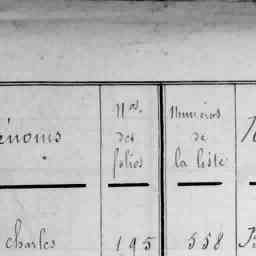 Nos. Numéros
énoms des de
folios la liste
charles 195 558